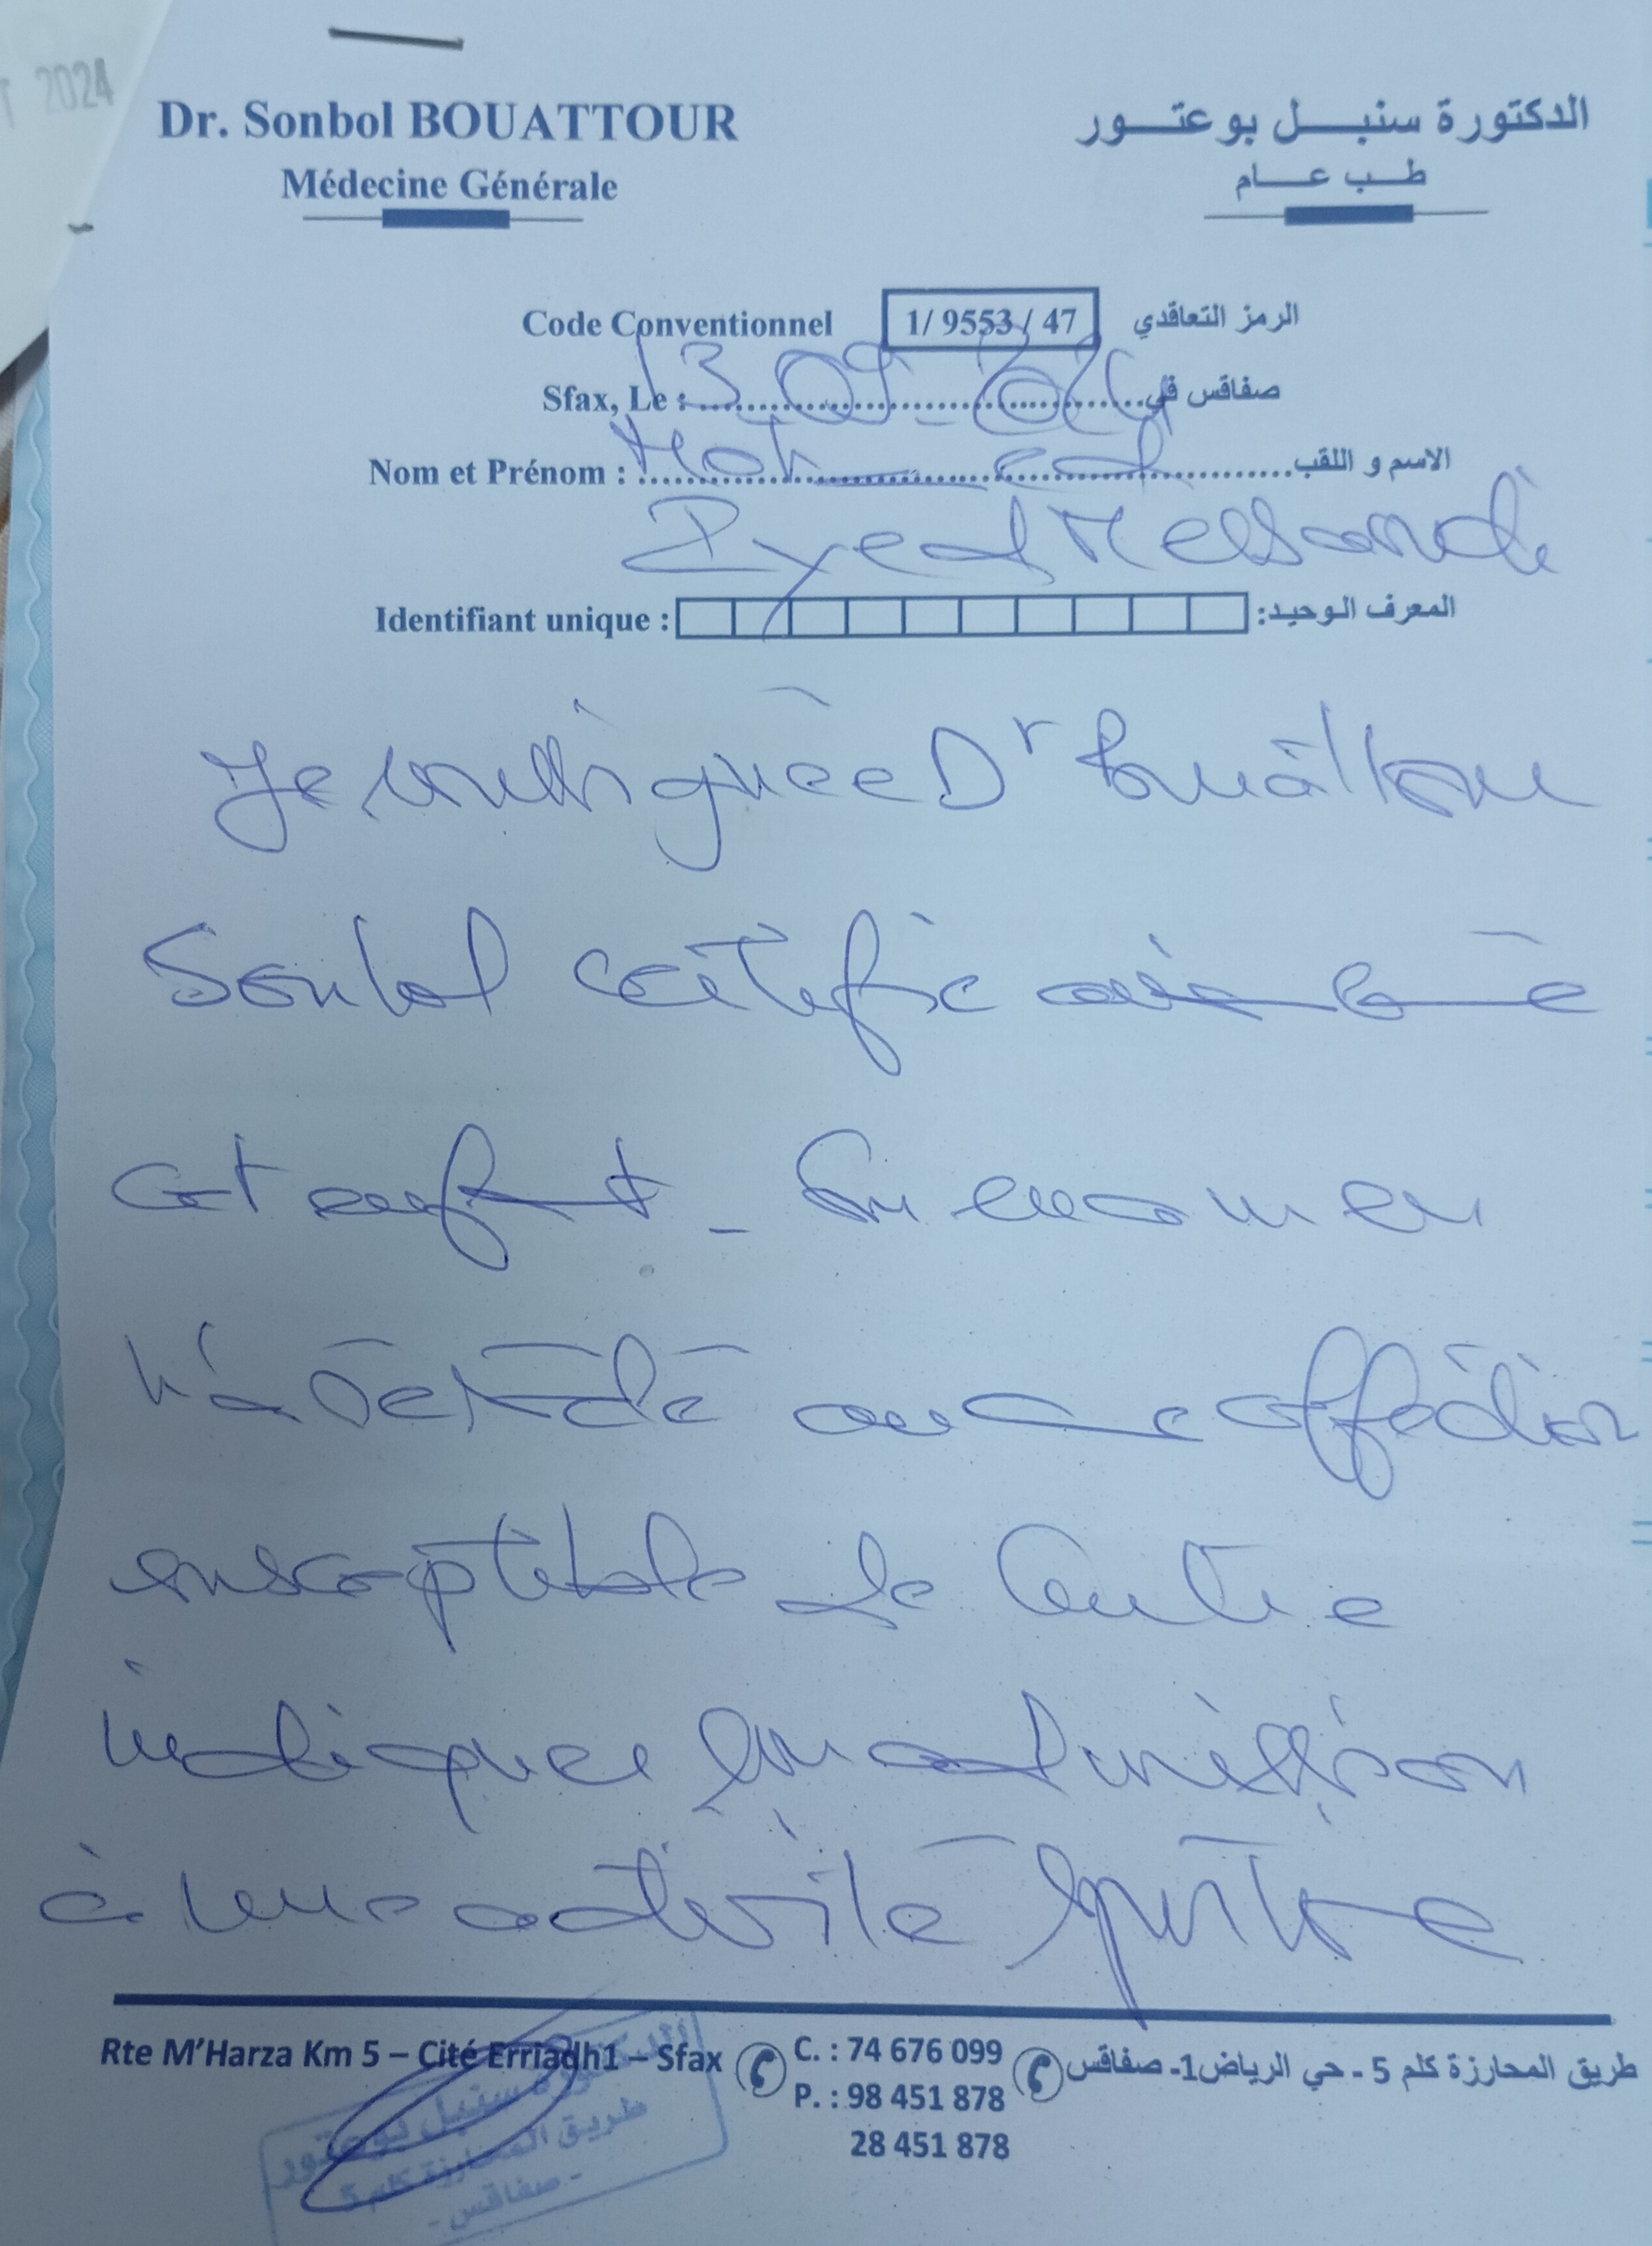 T 2024
Dr. Sonbol BOUATTOUR
Médecine Générale
الدكتورة سنبل بوعتور
طب عام
Code Conventionnel 1/ 9553 / 47 الرمز التعاقدي
Sfax, Le : 13_09_2024 صفاقس في
Nom et Prénom : Mohamed الاسم و اللقب
Iyed Messaoudi
Identifiant unique : المعرف الوحيد:
Je soussignée Dr Bouattour
Sonbol certifie avoir
cet enfant _ Son examen
n'a décelé aucune affection
susceptible de contre
indiquer son admission
à une activité sportive
Rte M'Harza Km 5 – Cité Erriadh1 – Sfax C. : 74 676 099 طريق المحارزة كلم 5 - حي الرياض1- صفاقس
P. : 98 451 878
28 451 878
الدكتورة سنبل بوعتور
طريق المحارزة كلم 5
- صفاقس -